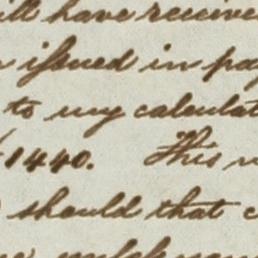 ill have receive
issued in pay
to my calculat
1440. This
should that c